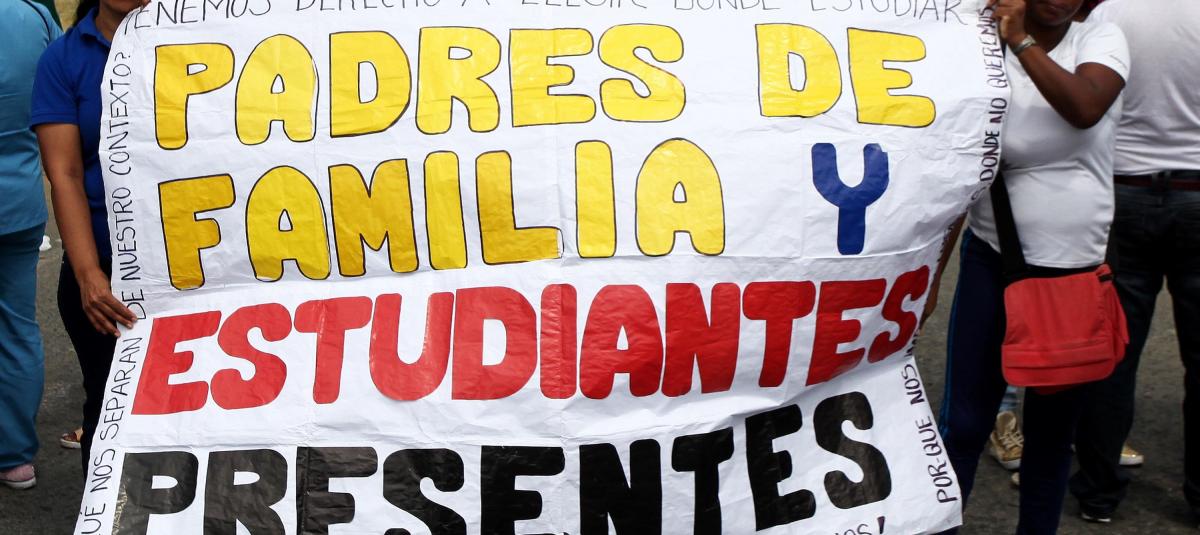 TENEMOS DERECHO A ELEGIR DONDE ESTUDIAR
PADRES DE
FAMILIA Y
ESTUDIANTES
PRESENTES
QUÉ NOS SEPARAN DE NUESTRO CONTEXTO?
POR QUE NOS
DONDE NO QUEREMOS